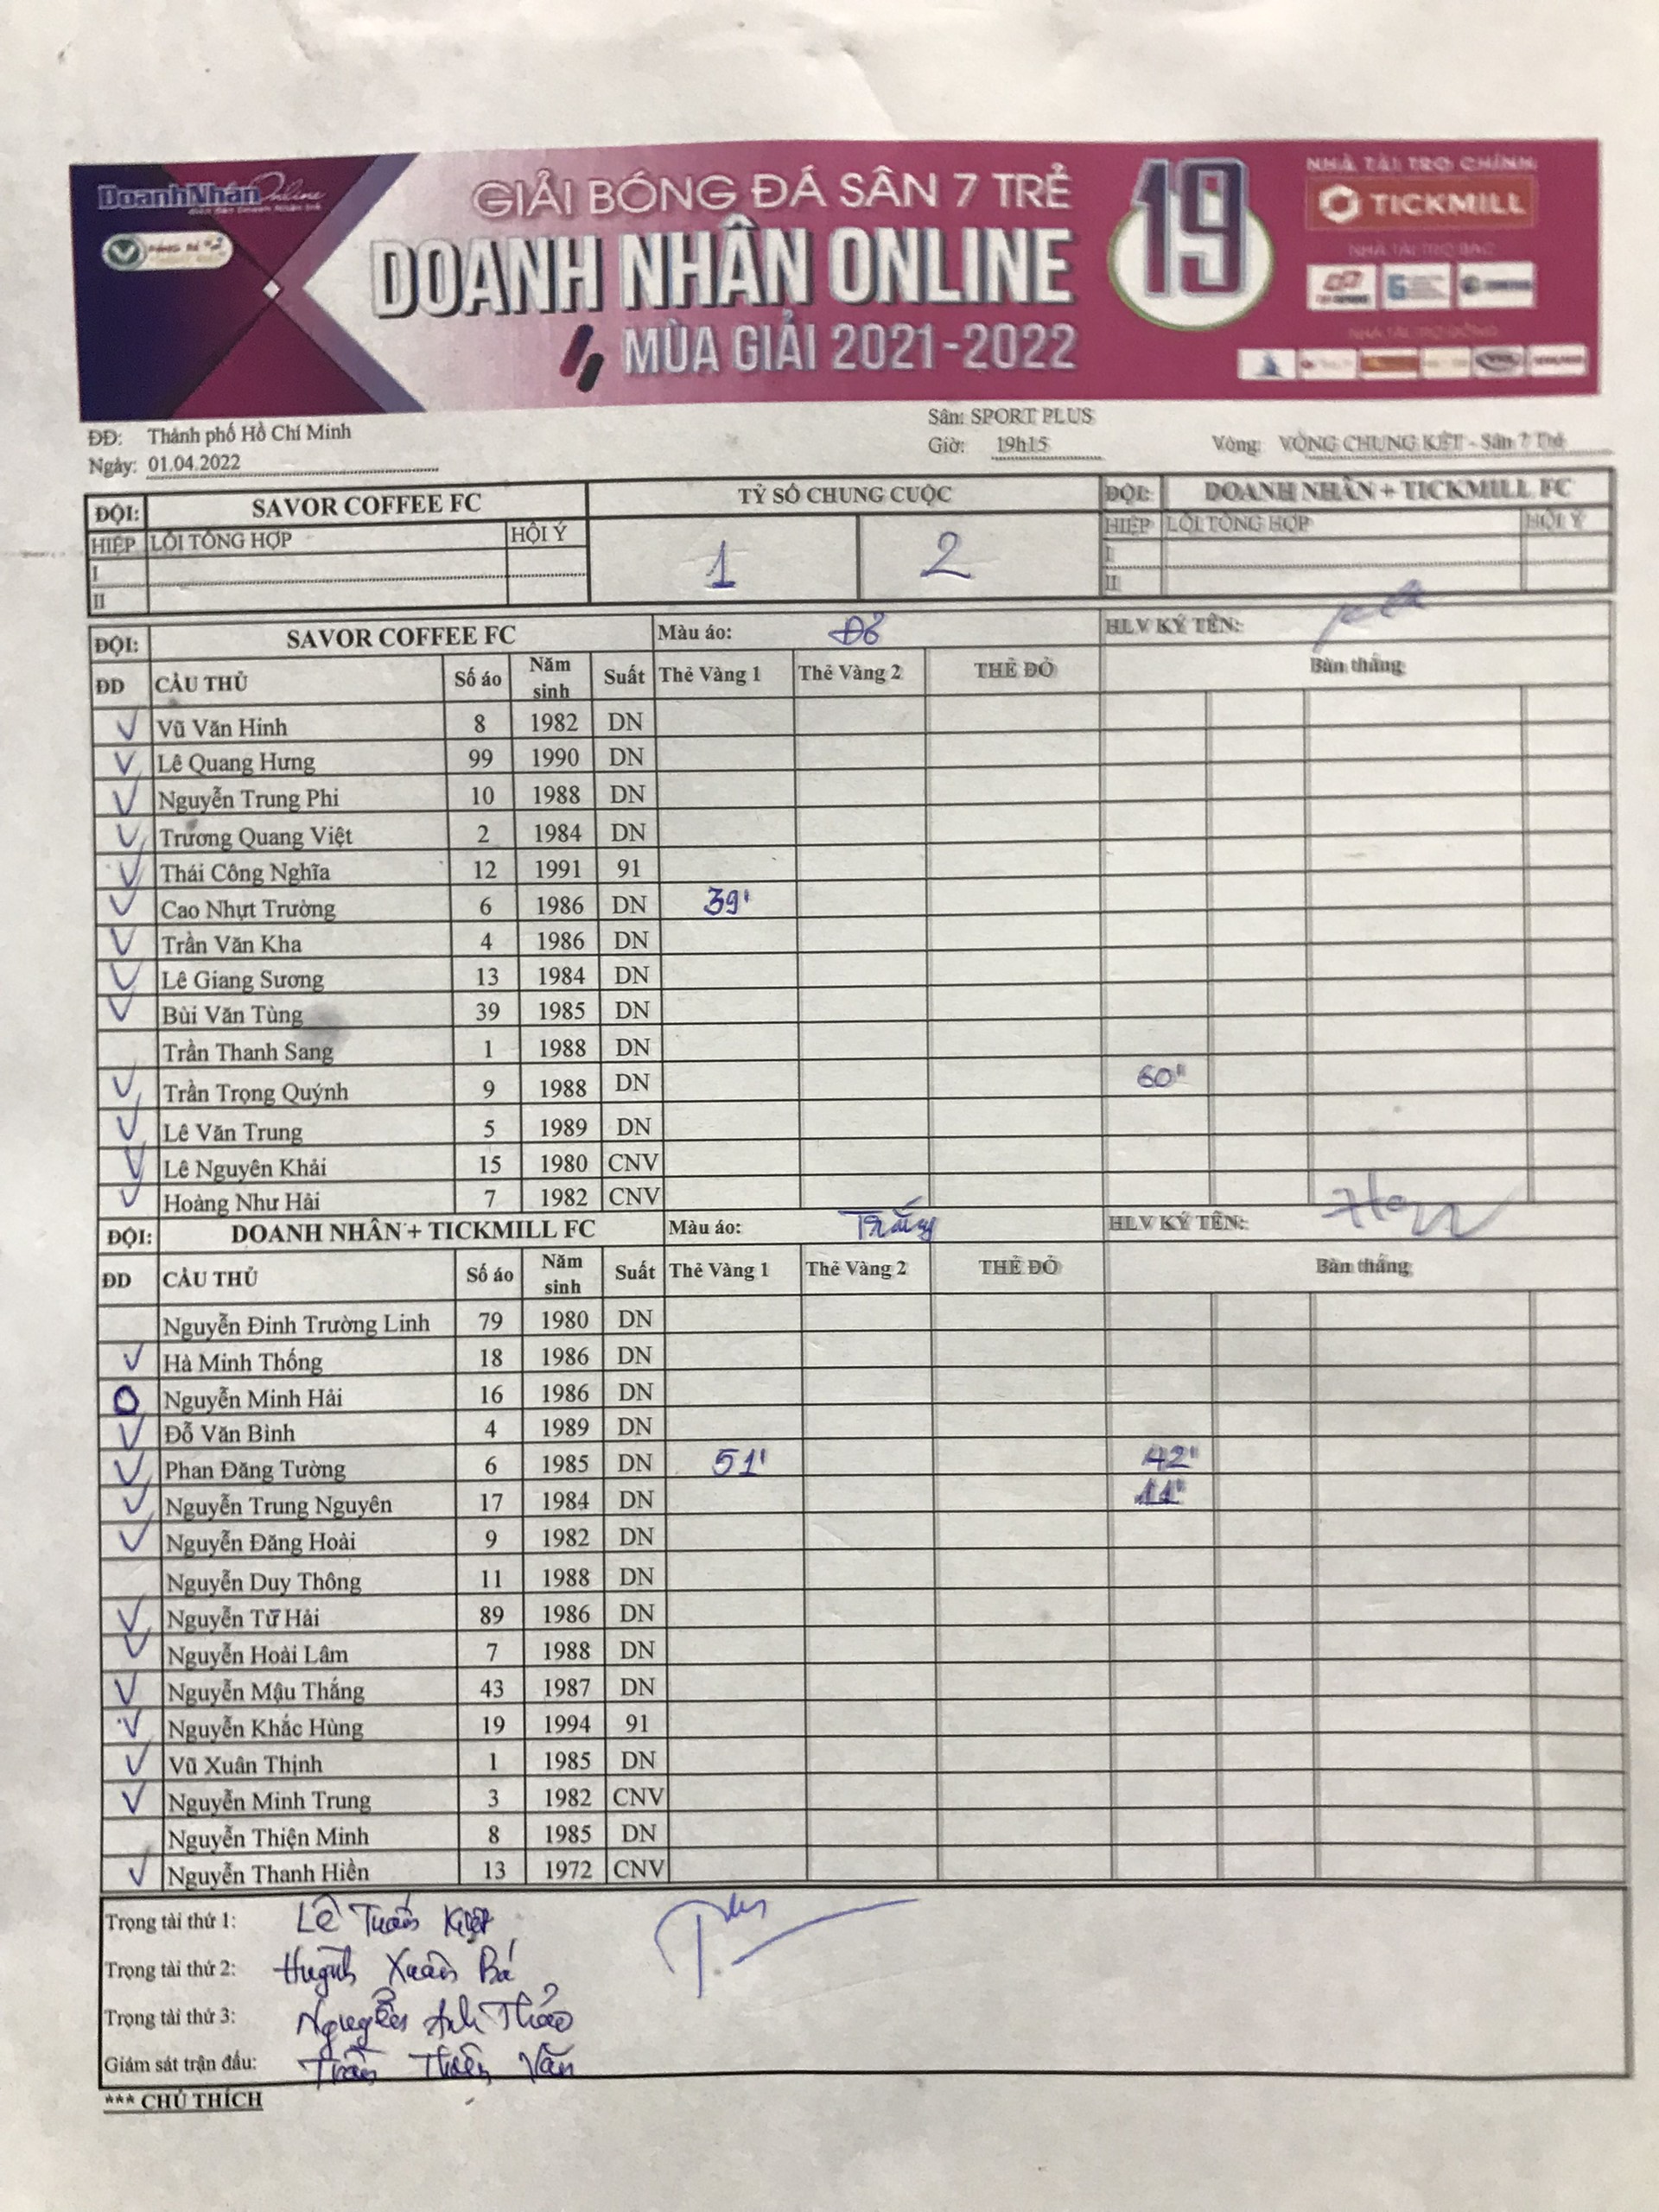 DoanhNhân Online
GIẢI BÓNG ĐÁ SÂN 7 TRẺ
DOANH NHÂN ONLINE
MÙA GIẢI 2021-2022
19
NHÀ TÀI TRỢ CHÍNH
TICKMILL
NHÀ TÀI TRỢ BẠC
NHÀ TÀI TRỢ ĐỒNG
ĐĐ: Thành phố Hồ Chí Minh
Ngày: 01.04.2022
Sân: SPORT PLUS
Giờ: 19h15
Vòng: VÒNG CHUNG KẾT - Sân 7 Trẻ
ĐỘI: SAVOR COFFEE FC TỶ SỐ CHUNG CUỘC ĐỘI: DOANH NHÂN + TICKMILL FC
HIỆP LỖI TỔNG HỢP HỘI Ý 1 2 HIỆP LỖI TỔNG HỢP HỘI Ý
I I
II II
ĐỘI: SAVOR COFFEE FC Màu áo: Đỏ HLV KÝ TÊN:
ĐD CẦU THỦ Số áo Năm sinh Suất Thẻ Vàng 1 Thẻ Vàng 2 THẺ ĐỎ Bàn thắng
V Vũ Văn Hinh 8 1982 DN
V Lê Quang Hưng 99 1990 DN
V Nguyễn Trung Phi 10 1988 DN
V Trương Quang Việt 2 1984 DN
V Thái Công Nghĩa 12 1991 91
V Cao Nhựt Trường 6 1986 DN 39'
V Trần Văn Kha 4 1986 DN
V Lê Giang Sương 13 1984 DN
V Bùi Văn Tùng 39 1985 DN
Trần Thanh Sang 1 1988 DN
V Trần Trọng Quýnh 9 1988 DN 60"
V Lê Văn Trung 5 1989 DN
V Lê Nguyên Khải 15 1980 CNV
V Hoàng Như Hải 7 1982 CNV
ĐỘI: DOANH NHÂN + TICKMILL FC Màu áo: Trắng HLV KÝ TÊN:
ĐD CẦU THỦ Số áo Năm sinh Suất Thẻ Vàng 1 Thẻ Vàng 2 THẺ ĐỎ Bàn thắng
Nguyễn Đinh Trường Linh 79 1980 DN
V Hà Minh Thống 18 1986 DN
O Nguyễn Minh Hải 16 1986 DN
V Đỗ Văn Bình 4 1989 DN
V Phan Đăng Tường 6 1985 DN 51' 42"
V Nguyễn Trung Nguyên 17 1984 DN 11"
V Nguyễn Đăng Hoài 9 1982 DN
Nguyễn Duy Thông 11 1988 DN
V Nguyễn Tử Hải 89 1986 DN
V Nguyễn Hoài Lâm 7 1988 DN
V Nguyễn Mậu Thắng 43 1987 DN
V Nguyễn Khắc Hùng 19 1994 91
V Vũ Xuân Thịnh 1 1985 DN
V Nguyễn Minh Trung 3 1982 CNV
Nguyễn Thiện Minh 8 1985 DN
V Nguyễn Thanh Hiền 13 1972 CNV
Trọng tài thứ 1: Lê Tuấn Kiệt
Trọng tài thứ 2: Huỳnh Xuân Bá
Trọng tài thứ 3: Nguyễn Anh Thảo
Giám sát trận đấu: Trần Thiên Văn
*** CHÚ THÍCH